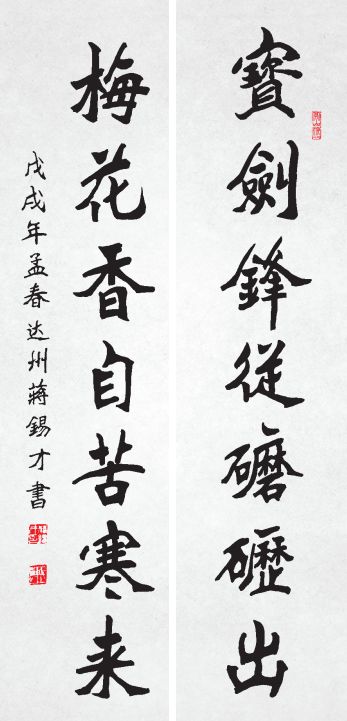 寶劍鋒從磨礪出
梅花香自苦寒来
戊戌年孟春达州蔣錫才書